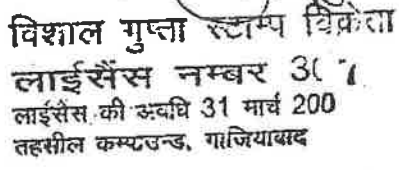 विशाल गुप्ता स्टाम्प विक्रेता
लाईसैंस नम्बर
लाईसैंस की अवधि 31 मार्च 200
तहसील कम्पाउन्ड, गाजियाबाद